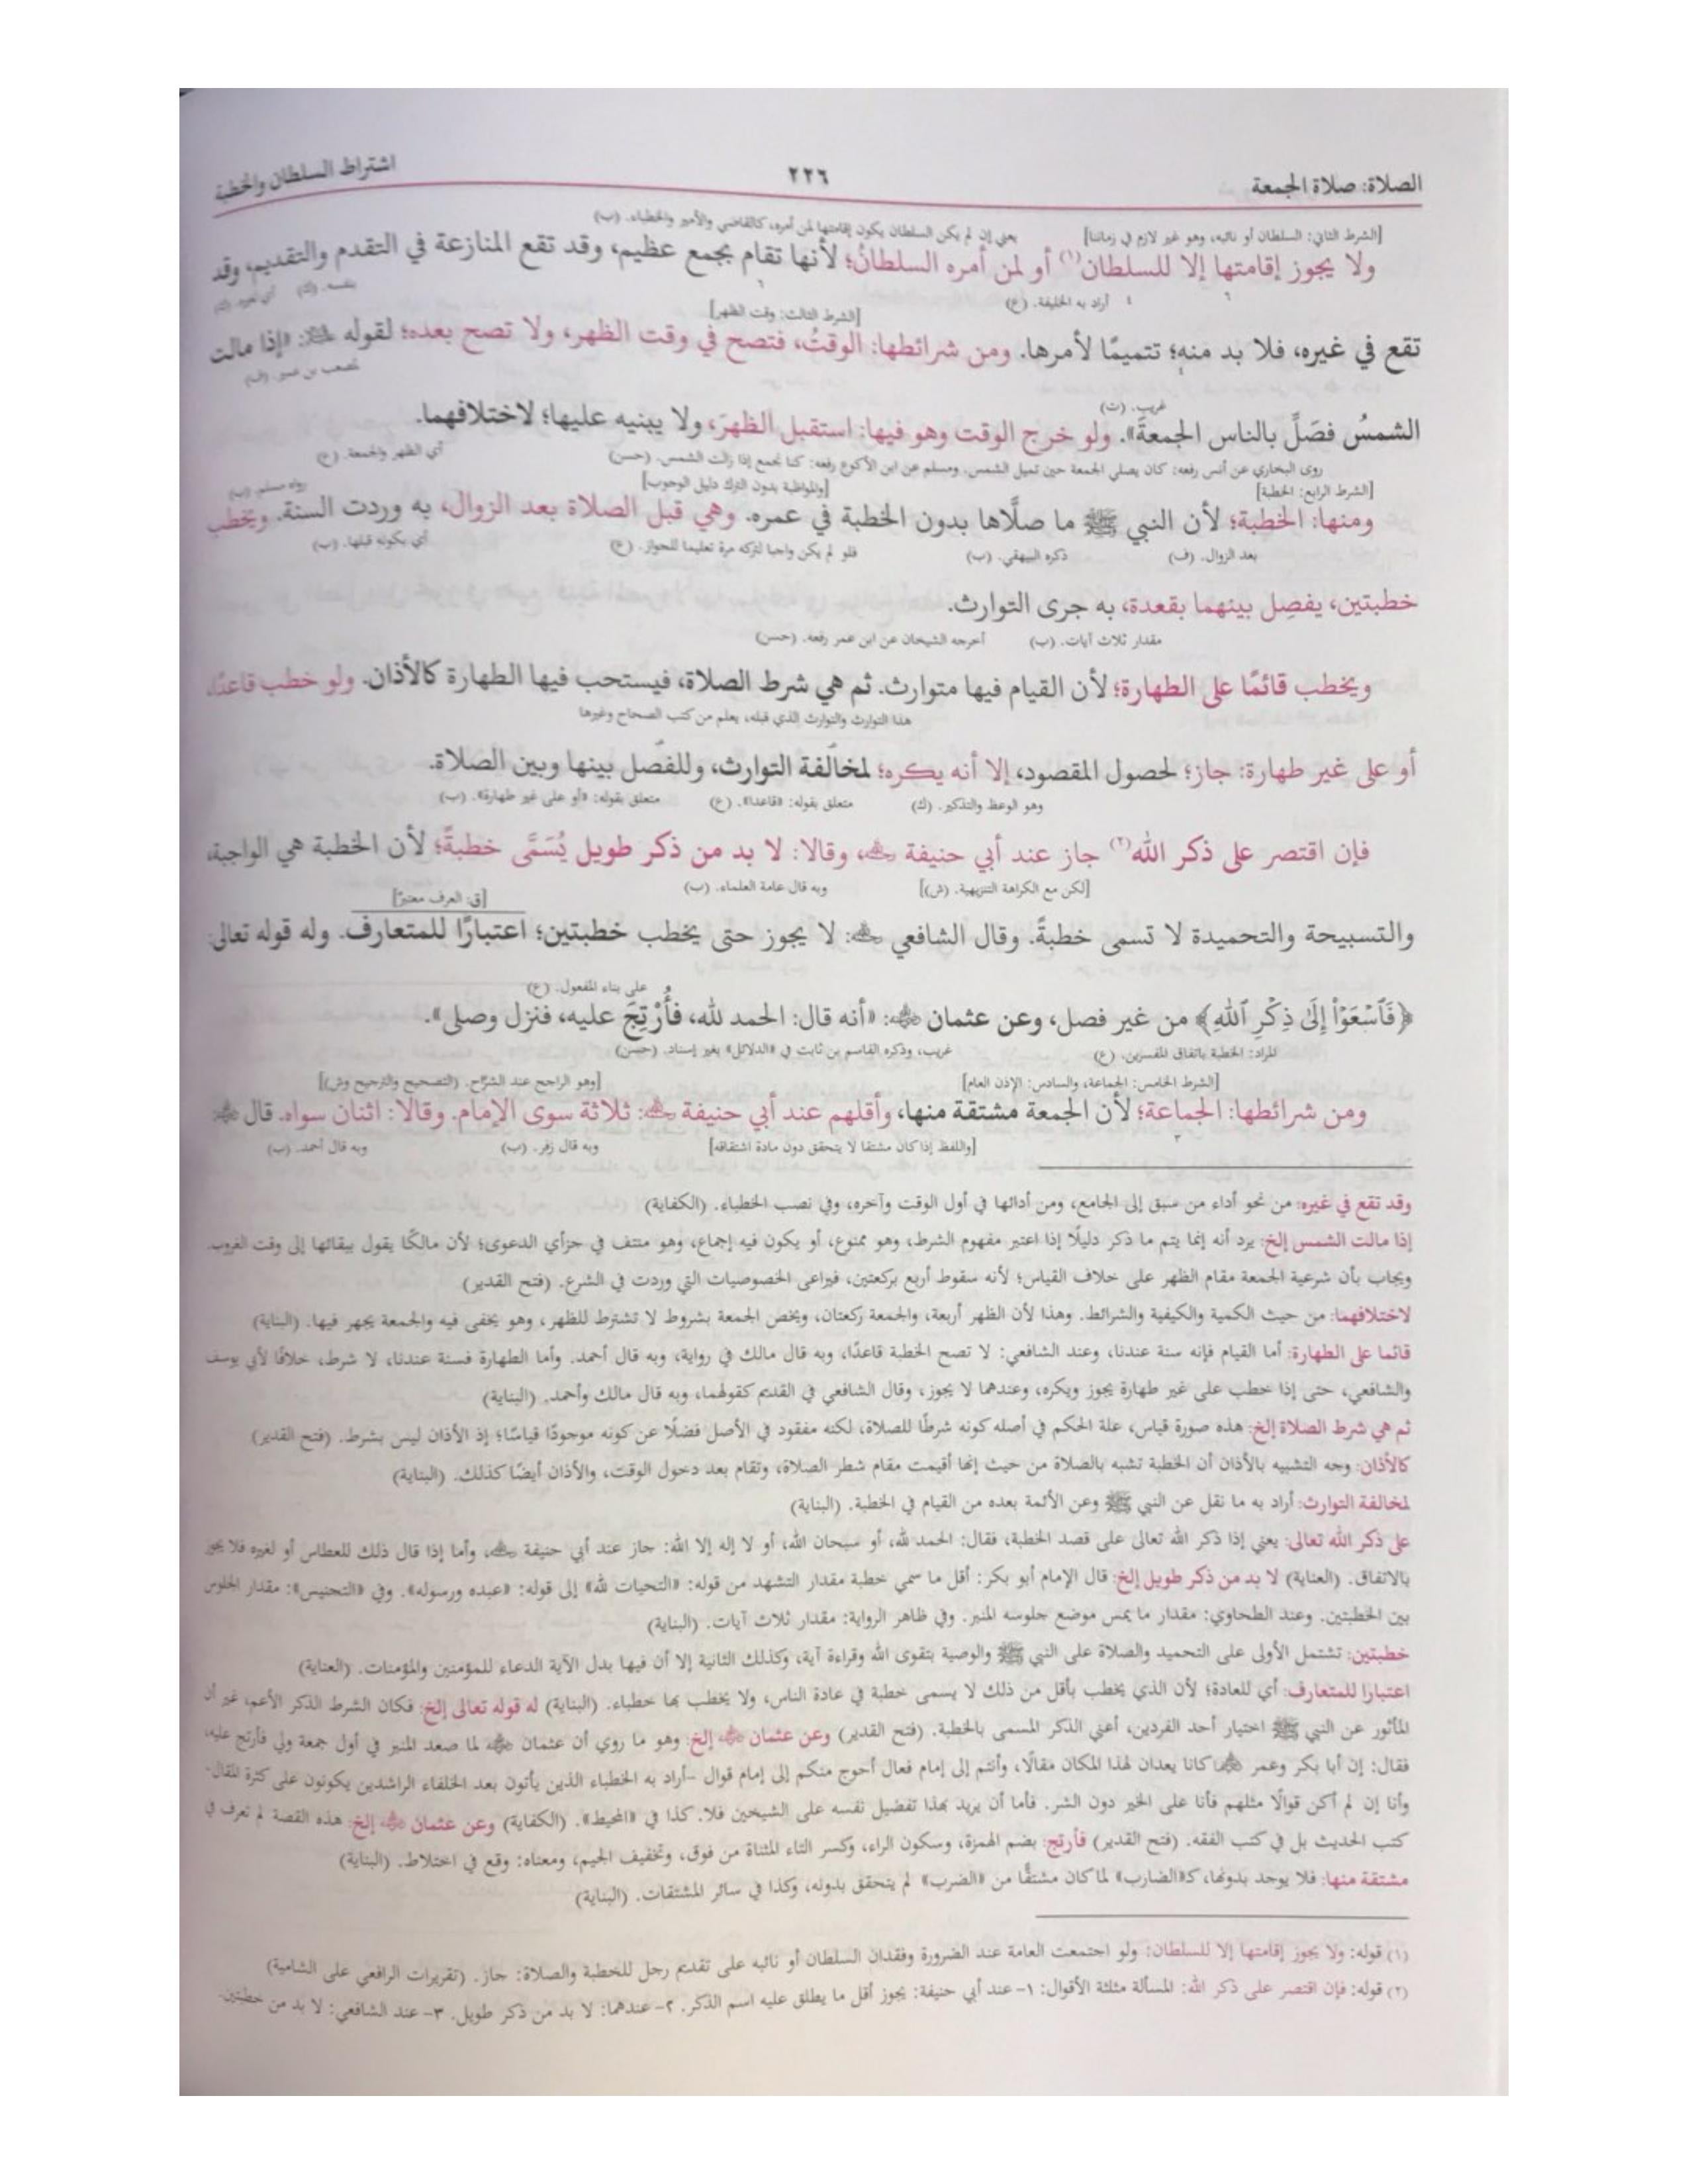 الصلاة: صلاة الجمعة
٢٢٦
اشتراط السلطان والخطبة
[الشرط الثاني: السلطان أو نائبه، وهو غير لازم في زماننا] يعني إن لم يكن السلطان يكون إقامتها لمن أمره، كالقاضي والأمير والخطباء. (ب)
ولا يجوز إقامتها إلا للسلطان(١) أو لمن أمره السلطانُ؛ لأنها تقام بجمع عظيم، وقد تقع المنازعة في التقدم والتقديم، وقد
أراد به الخليفة. (ع) بنفسه. (ك) أي لغيره. (ك)
[الشرط الثالث: وقت الظهر]
تقع في غيره، فلا بد منه؛ تتميمًا لأمرها. ومن شرائطها: الوقتُ، فتصح في وقت الظهر، ولا تصح بعده؛ لقوله ﷺ: «إذا مالت
لمصعب بن عمير. (ف)
غريب. (ت)
الشمسُ فصَلِّ بالناس الجمعةَ». ولو خرج الوقت وهو فيها: استقبل الظهرَ، ولا يبنيه عليها؛ لاختلافهما.
أي الظهر والجمعة. (ع)
روى البخاري عن أنس رفعه: كان يصلي الجمعة حين تميل الشمس. ومسلم عن ابن الأكوع رفعه: كنا نجمع إذا زالت الشمس. (حسن)
[الشرط الرابع: الخطبة] [والمواظبة بدون الترك دليل الوجوب] رواه مسلم. (ب)
ومنها: الخطبة؛ لأن النبي ﷺ ما صلَّاها بدون الخطبة في عمره. وهي قبل الصلاة بعد الزوال، به وردت السنة. ويخطب
بعد الزوال. (ف) ذكره البيهقي. (ب) فلو لم يكن واجبا لتركه مرة تعليما للجواز. (ع) أي بكونه قبلها. (ب)
خطبتين، يفصِل بينهما بقعدة، به جرى التوارث.
مقدار ثلاث آيات. (ب) أخرجه الشيخان عن ابن عمر رفعه. (حسن)
ويخطب قائمًا على الطهارة؛ لأن القيام فيها متوارث. ثم هي شرط الصلاة، فيستحب فيها الطهارة كالأذان. ولو خطب قاعدًا،
هذا التوارث والتوارث الذي قبله، يعلم من كتب الصحاح وغيرها
أو على غير طهارة: جاز؛ لحصول المقصود، إلا أنه يكره؛ لمخالفة التوارث، وللفصل بينها وبين الصلاة.
وهو الوعظ والتذكير. (ك) متعلق بقوله: «قاعدا». (ع) متعلق بقوله: «أو على غير طهارة». (ب)
فإن اقتصر على ذكر الله(٢) جاز عند أبي حنيفة ﷺ، وقالا: لا بد من ذكر طويل يُسَمَّى خطبةً؛ لأن الخطبة هي الواجبة،
[لكن مع الكراهة التنزيهية. (ش)] وبه قال عامة العلماء. (ب)
[ق: العرف معتبرٌ]
والتسبيحة والتحميدة لا تسمى خطبةً. وقال الشافعي: لا يجوز حتى يخطب خطبتين؛ اعتبارًا للمتعارف. وله قوله تعالى:
على بناء المفعول. (ع)
﴿فَٱسۡعَوۡاْ إِلَىٰ ذِكۡرِ ٱللَّهِ﴾ من غير فصل، وعن عثمان: «أنه قال: الحمد لله، فأُرْتِجَ عليه، فنزل وصلى».
المراد: الخطبة باتفاق المفسرين. (ع) غريب، وذكره القاسم بن ثابت في «الدلائل» بغير إسناد. (حسن)
[الشرط الخامس: الجماعة، والسادس: الإذن العام] [وهو الراجح عند الشرّاح. (التصحيح والترجيح وش)]
ومن شرائطها: الجماعة؛ لأن الجمعة مشتقة منها، وأقلهم عند أبي حنيفة: ثلاثة سوى الإمام. وقالا: اثنان سواه. قال
[واللفظ إذا كان مشتقا لا يتحقق دون مادة اشتقاقه] وبه قال زفر. (ب) وبه قال أحمد. (ب)
وقد تقع في غيره: من نحو أداء من سبق إلى الجامع، ومن أدائها في أول الوقت وآخره، وفي نصب الخطباء. (الكفاية)
إذا مالت الشمس إلخ: يرد أنه إنما يتم ما ذكر دليلًا إذا اعتبر مفهوم الشرط، وهو ممنوع، أو يكون فيه إجماع، وهو منتف في جزأي الدعوى؛ لأن مالكًا يقول ببقائها إلى وقت الغروب.
ويجاب بأن شرعية الجمعة مقام الظهر على خلاف القياس؛ لأنه سقوط أربع بركعتين، فيراعى الخصوصيات التي وردت في الشرع. (فتح القدير)
لاختلافهما: من حيث الكمية والكيفية والشرائط. وهذا لأن الظهر أربعة، والجمعة ركعتان، ويخص الجمعة بشروط لا تشترط للظهر، وهو يخفى فيه والجمعة يجهر فيها. (البناية)
قائما على الطهارة: أما القيام فإنه سنة عندنا، وعند الشافعي: لا تصح الخطبة قاعدًا، وبه قال مالك في رواية، وبه قال أحمد. وأما الطهارة فسنة عندنا، لا شرط، خلافًا لأبي يوسف
والشافعي، حتى إذا خطب على غير طهارة يجوز ويكره، وعندهما لا يجوز، وقال الشافعي في القديم كقولهما، وبه قال مالك وأحمد. (البناية)
ثم هي شرط الصلاة إلخ: هذه صورة قياس، علة الحكم في أصله كونه شرطًا للصلاة، لكنه مفقود في الأصل فضلًا عن كونه موجودًا قياسًا؛ إذ الأذان ليس بشرط. (فتح القدير)
كالأذان: وجه التشبيه بالأذان أن الخطبة تشبه بالصلاة من حيث إنها أقيمت مقام شطر الصلاة، وتقام بعد دخول الوقت، والأذان أيضًا كذلك. (البناية)
لمخالفة التوارث: أراد به ما نقل عن النبي ﷺ وعن الأئمة بعده من القيام في الخطبة. (البناية)
على ذكر الله تعالى: يعني إذا ذكر الله تعالى على قصد الخطبة، فقال: الحمد لله، أو سبحان الله، أو لا إله إلا الله: جاز عند أبي حنيفة، وأما إذا قال ذلك للعطاس أو لغيره فلا يجوز
بالاتفاق. (العناية) لا بد من ذكر طويل إلخ: قال الإمام أبو بكر: أقل ما سمي خطبة مقدار التشهد من قوله: «التحيات لله» إلى قوله: «عبده ورسوله». وفي «التجنيس»: مقدار الجلوس
بين الخطبتين. وعند الطحاوي: مقدار ما يمس موضع جلوسه المنبر. وفي ظاهر الرواية: مقدار ثلاث آيات. (البناية)
خطبتين: تشتمل الأولى على التحميد والصلاة على النبي ﷺ والوصية بتقوى الله وقراءة آية، وكذلك الثانية إلا أن فيها بدل الآية الدعاء للمؤمنين والمؤمنات. (العناية)
اعتبارا للمتعارف: أي للعادة؛ لأن الذي يخطب بأقل من ذلك لا يسمى خطبة في عادة الناس، ولا يخطب بها خطباء. (البناية) له قوله تعالى إلخ: فكان الشرط الذكر الأعم، غير أن
المأثور عن النبي ﷺ اختيار أحد الفردين، أعني الذكر المسمى بالخطبة. (فتح القدير) وعن عثمان إلخ: وهو ما روي أن عثمان لما صعد المنبر في أول جمعة ولي فأرتج عليه،
فقال: إن أبا بكر وعمر كانا يعدان لهذا المكان مقالًا، وأنتم إلى إمام فعال أحوج منكم إلى إمام قوال -أراد به الخطباء الذين يأتون بعد الخلفاء الراشدين يكونون على كثرة المقال-
وأنا إن لم أكن قوالًا مثلهم فأنا على الخير دون الشر. فأما أن يريد بهذا تفضيل نفسه على الشيخين فلا. كذا في «المحيط». (الكفاية) وعن عثمان إلخ: هذه القصة لم تعرف في
كتب الحديث بل في كتب الفقه. (فتح القدير) فأرتج: بضم الهمزة، وسكون الراء، وكسر التاء المثناة من فوق، وتخفيف الجيم، ومعناه: وقع في اختلاط. (البناية)
مشتقة منها: فلا يوجد بدونها، كـ«الضارب» لما كان مشتقًّا من «الضرب» لم يتحقق بدونه، وكذا في سائر المشتقات. (البناية)
(١) قوله: ولا يجوز إقامتها إلا للسلطان: ولو اجتمعت العامة عند الضرورة وفقدان السلطان أو نائبه على تقديم رجل للخطبة والصلاة: جاز. (تقريرات الرافعي على الشامية)
(٢) قوله: فإن اقتصر على ذكر الله: المسألة مثلثة الأقوال: ١- عند أبي حنيفة: يجوز أقل ما يطلق عليه اسم الذكر. ٢- عندهما: لا بد من ذكر طويل. ٣- عند الشافعي: لا بد من خطبتين.